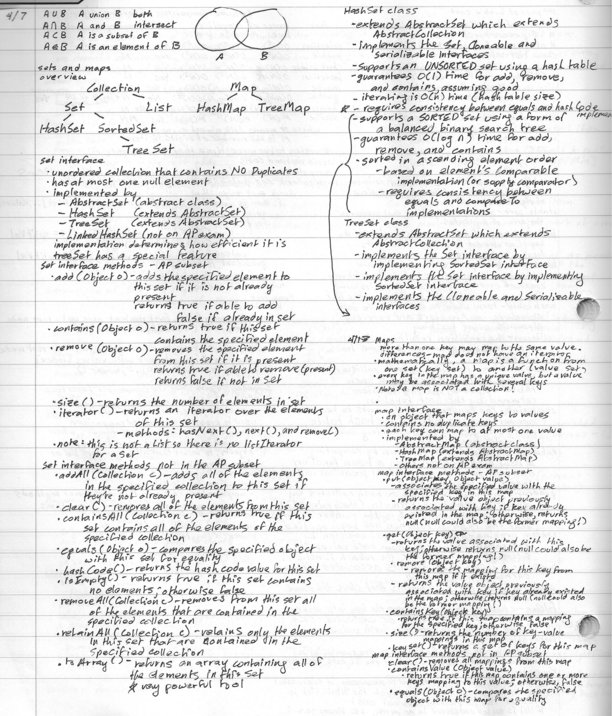 4/7
A∪B A union B both
A∩B A and B intersect
A⊂B A is a subset of B
A∈B A is an element of B
A B
sets and maps
overview
Collection Map
Set List HashMap TreeMap
HashSet SortedSet
TreeSet
set interface
· unordered collection that contains NO Duplicates
· has at most one null element
· implemented by
- AbstractSet (abstract class)
- HashSet (extends AbstractSet)
- TreeSet (extends AbstractSet)
- LinkedHashSet (not on AP exam)
implementation determines how efficient it is
treeSet has a special feature
set interface methods - AP subset
· add (Object o) - adds the specified element to
this set if it is not already
present
returns true if able to add
false if already in set
· contains (Object o) - returns true if this set
contains the specified element
· remove (Object o) - removes the specified element
from this set if it is present
returns true if able to remove (present)
returns false if not in set
· size () - returns the number of elements in set
· iterator () - returns an iterator over the elements
of this set
- methods: hasNext(), next(), and remove()
· note: this is not a List so there is no listIterator
for a set
set interface methods not in the AP subset
· addAll (Collection c) - adds all of the elements
in the specified collection to this set if
they're not already present
· clear () - removes all of the elements from this set
· containsAll (Collection c) - returns true if this
set contains all of the elements of the
specified collection
· equals (Object o) - compares the specified object
with this set for equality
· hashCode() - returns the hash code value for this set
· isEmpty() - returns true if this set contains
no elements, otherwise false
· removeAll (Collection c) - removes from this set all
of the elements that are contained in the
specified collection
· retainAll (Collection c) - retains only the elements
in this set that are contained in the
specified collection
· toArray () - returns an array containing all of
the elements in this set
* very powerful tool
HashSet class
- extends AbstractSet which extends
AbstractCollection
- implements the Set, Cloneable and
Serializable interfaces
- supports an UNSORTED set using a hash table
- guarantees O(1) time for add, remove,
and contains, assuming good
- iterating is O(n) time (hash table size)
- requires consistency between equals and hashCode
implement
- supports a SORTED set using a form of
a balanced binary search tree
- guarantees O(log n) time for add,
remove, and contains
- sorted in ascending element order
- based on element's Comparable
implementation (or supply comparator)
- requires consistency between
equals and compareTo
implementations
TreeSet class
- extends AbstractSet which extends
AbstractCollection
- implements the Set interface by
implementing SortedSet interface
- implements the Set interface by implementing
SortedSet interface
- implements the Cloneable and Serializable
interfaces
Maps
more than one key may map to the same value.
differences - map does not have an iterator
· mathematically, a map is a function from
one set (key set) to another (value set)
· every key in the map has a unique value, but a value
may be associated with several keys
· Note: a map is NOT a collection!
map interface
· an object that maps keys to values
· contains no duplicate keys
· each key can map to at most one value
· implemented by
- AbstractMap (abstract class)
- HashMap (extends AbstractMap)
- TreeMap (extends AbstractMap)
- others not on AP exam
map interface methods - AP subset
· put (object key, object value)
- associates the specified value with the
specified key in this map
- returns the value object previously
associated with key if key already
existed in the map; otherwise, returns
null (null could also be the former mapping!)
· get (object key)
- returns the value associated with this
key; otherwise returns null (null could also be
the former mapping!)
· remove (object key)
- removes the mapping for this key from
this map if it existed
- returns the value object previously
associated with key if key already existed
in the map; otherwise returns null (null can also
be the former mapping!)
· containsKey (object key)
returns true if this map contains a mapping
for the specified key; otherwise false
· size () - returns the number of key-value
mappings in the map
· keySet() - returns a set of keys for this map
map interface methods not in AP subset
· clear() - removes all mappings from this map
· containsValue (object value)
- returns true if this map contains one or more
keys mapping to this value; otherwise, false
· equals (Object o) - compares the specified
object with this map for equality